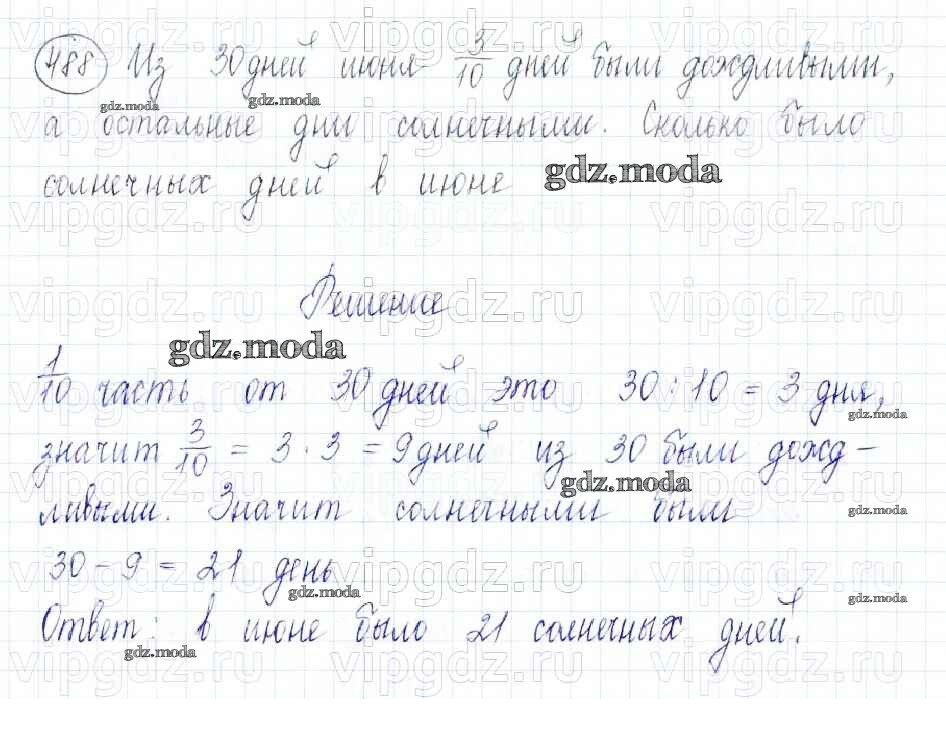 488 Из 30 дней июня 3/10 дней были дождливыми,
а остальные дни солнечными. Сколько было
солнечных дней в июне
Решение
1/10 часть от 30 дней это 30 : 10 = 3 дня,
значит 3/10 = 3 · 3 = 9 дней из 30 были дожд-
ливыми. Значит солнечными были
30 - 9 = 21 день
Ответ: в июне было 21 солнечных дней.
gdz.moda
vipgdz.ru